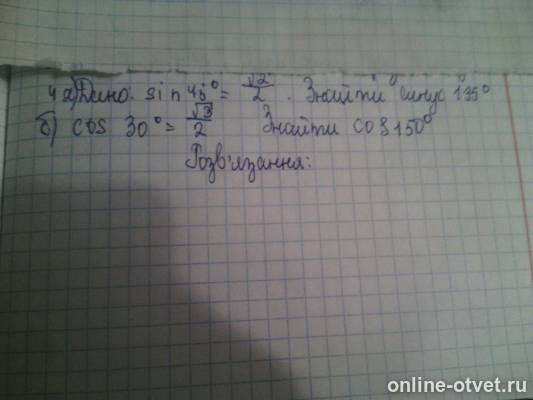 4 а) Дано: sin 45° = √2/2. Знайти синус 135°
б) cos 30° = √3/2 Знайти cos 150°
Розв'язання:
online-otvet.ru